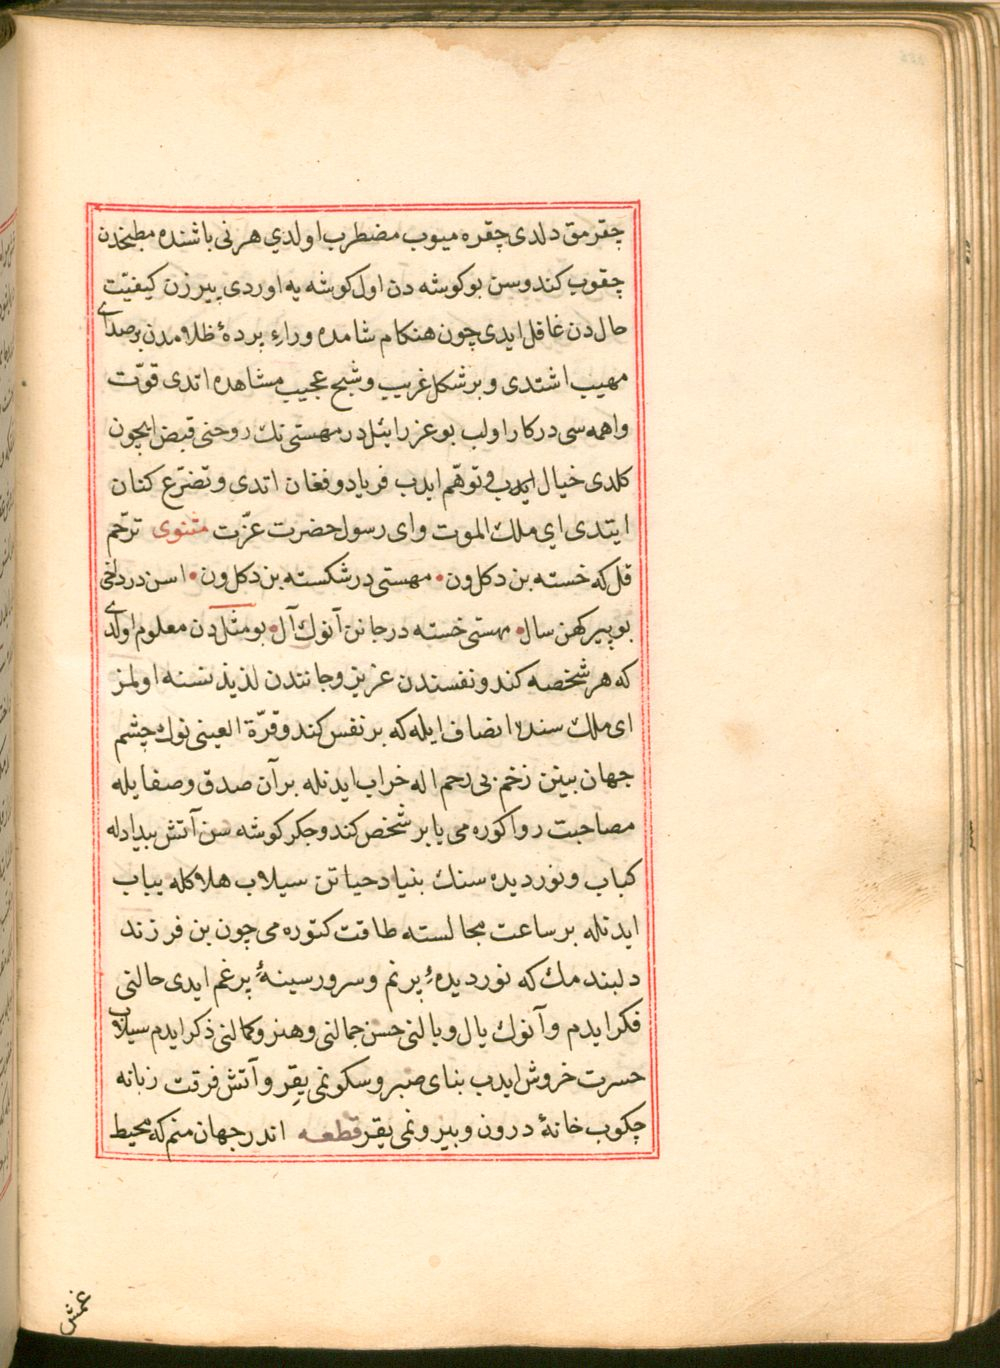 چقرمق دلدی چقره میوب مضطرب اولدي هر نی باشنده مطبخدن
چقوب کندوسن بو کوشه دن اول کوشه یه اوردی پیر زن کیفیّت
حال دن غافل ایدی چون هنکام شامده وراء پردهٔ ظلامدن بر صدای
مهیب اشتدی و بر شکل غریب و شبح عجیب مشاهده اتدی قوّت
واهمه سی درکار اولب بو عزرائیلدر مهستی نك روحنی قبض ایچون
کلدی خیال ایدب و توهّم ایدب فریاد و فغان اتدی و تضرّع کنان
ایتدی اي ملك الموت وای رسول حضرت عزّت مثنوی ترحّم
قل که خسته بن دکلون • مهستی در شکسته بن دکلون • اسن در داخی
بو پیر کهن سال • مهستی خسته در جانن آنوك آل • بو مثل دن معلوم اولدی
که هر شخصه کندو نفسندن عزیز و جانندن لذیذ نسنه اولمز
ای ملك سنده انصاف ایله که بر نفس کندو قرّة العینی نوك چشم
جهان بینن زخم بی رحم اله خراب ایدنله بر آن صدق و صفا یله
مصاحبت روا کوره می یا بر شخص کندو جکر کوشه سن آتش بیداد له
کباب و نور دیده سنك بنیاد حیاتن سیلاب هلاکله یباب
ایدنله بر ساعت مجالسته طاقت کتوره می چون بن فرزند
دلبندمك که نور دیدهٔ پر نم و سرور سینهٔ پر غم ایدی حالتی
فکر ایدم و آنوك یال و بالنی حسن جمالنی و هنر و کمالنی ذکر ایدم سیلاب
حسرت خروش ایدب بنای صبر و سکونمی یقر و آتش فرقت زبانه
چکوب خانهٔ درون و بیرونمی یقر قطعه اندر جهان منم که محیط
غمش